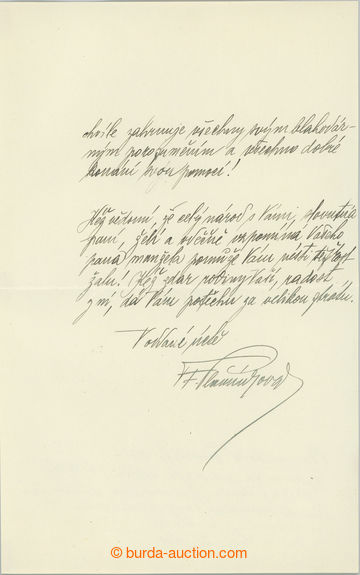 chvíle zahrnuje všechny svým blahodár-
ným porozuměním a všechno dobré
konání svou pomocí!
Kéž vědomí, že celý národ s Vámi,
paní, želí a vděčně vzpomíná Vašeho
pana manžela pomůže Vám nésti
žalu! Kéž zdar rodiny Vaší, radost
z ní, dá Vám potěchu za velikou ztrátu.
V oddané úctě
© burda-auction.com